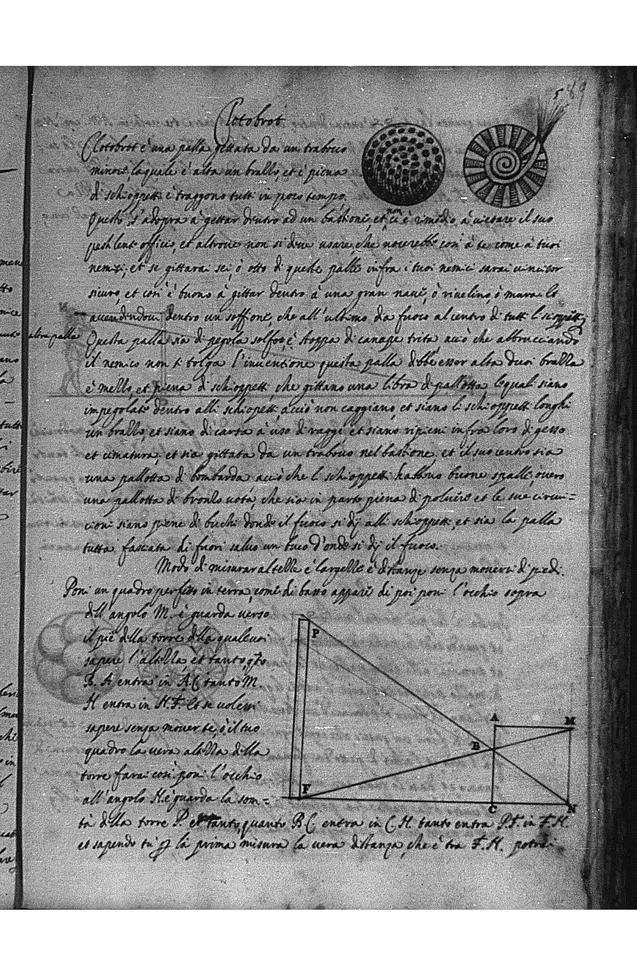 589
Clotobrot
Clotobrot è una palla gettata da un trabocco
minore laquale è alta un brallo, et è piena
di schioppetti è traggono tutti in poco tempo,
Questo s'adopra à gettar dentro ad un bastione et non ci è rimedio à vietare il suo
pestilente officio, et altrove non si deve usare che nocerebbe così à te come à tuoi
nemici, et se gittarai sei ò otto di queste palle infra i tuoi nemici sarai vincitor
sicuro, et così è buono à gittar dentro à una gran nave, ò rivelino ò mura
accendendovi dentro un soffione che all'ultimo da fuoco al centro di tutti li scoppetti
altra palla
Questa palla sia di pegola solfore stoppa di canape trita acciò che abbrucciando
il nemico non ti tolga l'invencione questa palla debbe esser alta duoi bralla
è mello, et piena di schioppetti, che gittano una libra di pallotta lequali siano
impegolate dentro alli schioppetti acciò non caggiano et siano li schioppetti longhi
un brallo, et siano di carta à uso di raggi et siano ripieni infra loro di gesso
et cimatura, et sia gittata da un trabucco nel bastione. et il suo centro sia
una pallotta di bombarda acciò che li schioppetti habbino buone spalle overo
una pallotta di bronlo vota, che sia in parte piena di polvere et le sue circui=
cioni siano piene di buchi donde il fuoco si dij alli schioppetti, et sia la palla
tutta fasciata di fuori salvo un buco d'onde si dij il fuoco.
Modo di misurar altelle è largelle è distanze senza moversi di piedi.
Poni un quadro perfetto in terra come di basso appare di poi poni l'occhio sopra
dell'angolo M. è guarda verso
il piè della torre della quale voi
sapere l'altella et tanto qto
B. A entra in A.C tanto M.
H entra in H.F. Et se volessi
sapere senza mover te ò il tuo
quadro la vera altella della
torre farai così poni l'occhio
all'angolo H. è guarda la som=
tà della torre P. et tanto quanto B.C. entra in C.H. tanto entra P.F. in F.H.
et sapendo tu per la prima misura la vera distanza che è tra F.H. potrai
P
A
M
B
F
C
N